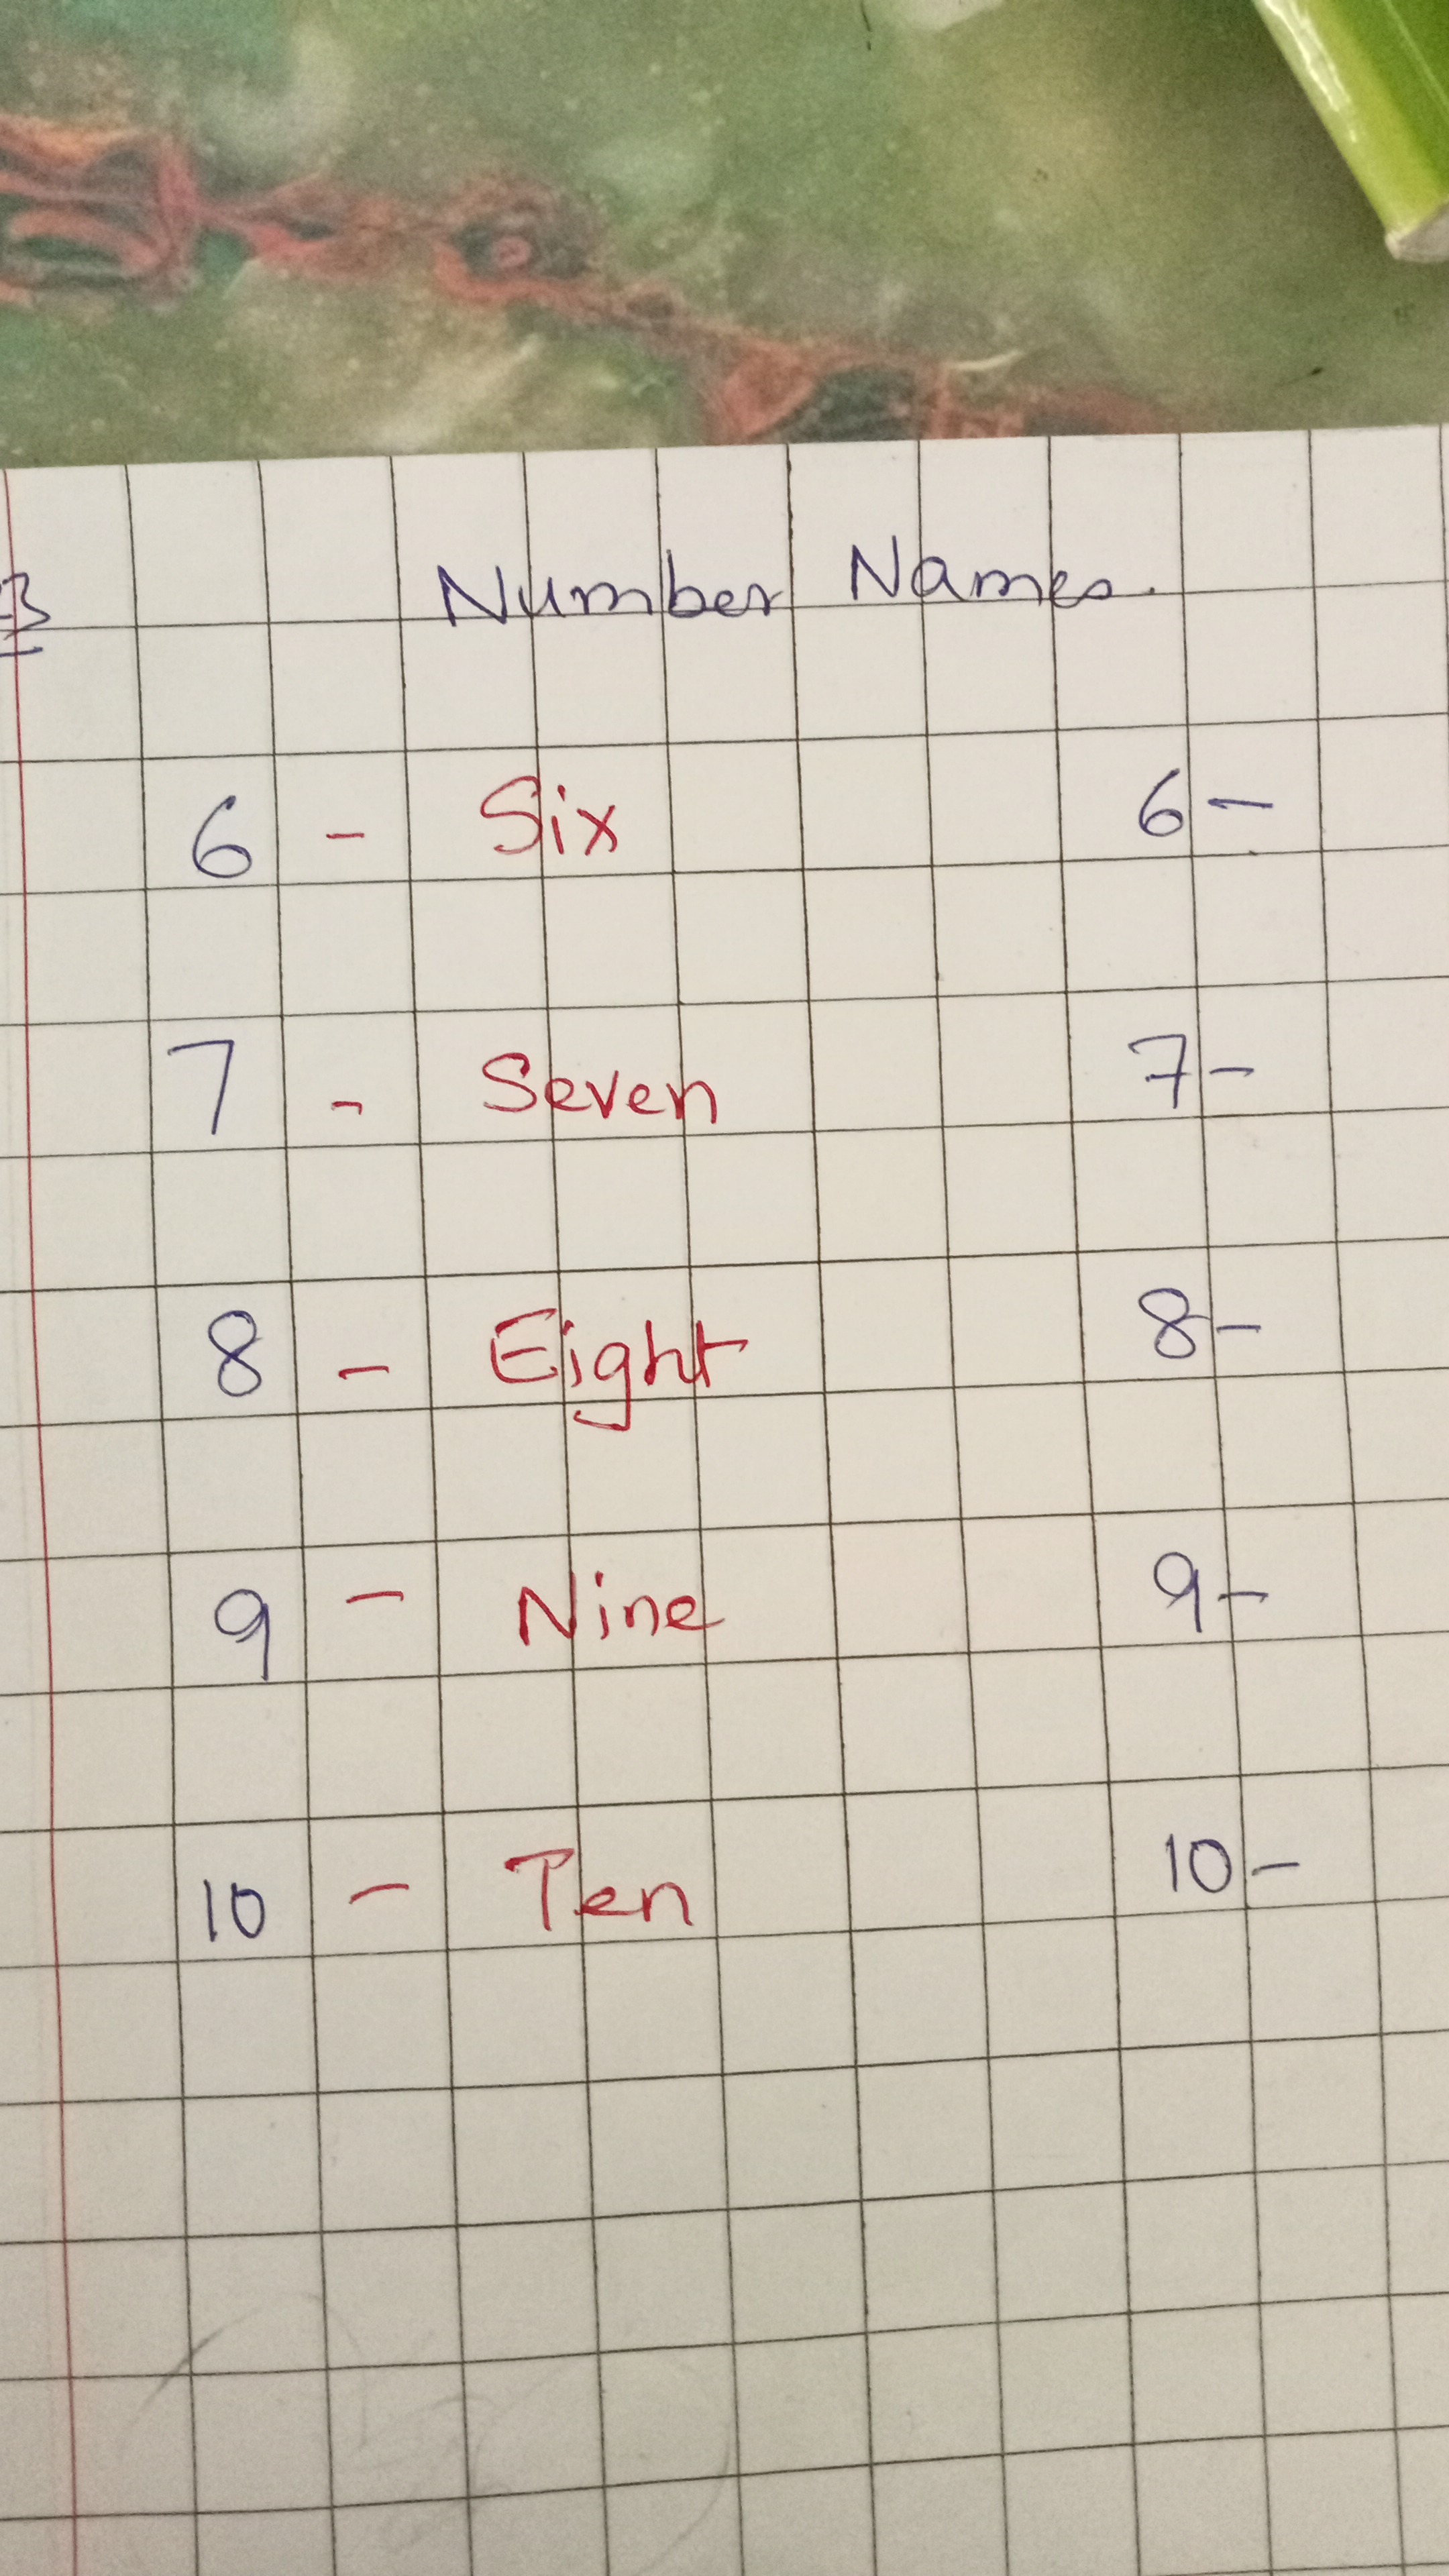 3 Number Names.
6 - Six 6-
7 - Seven 7-
8 - Eight 8-
9 - Nine 9-
10 - Ten 10-